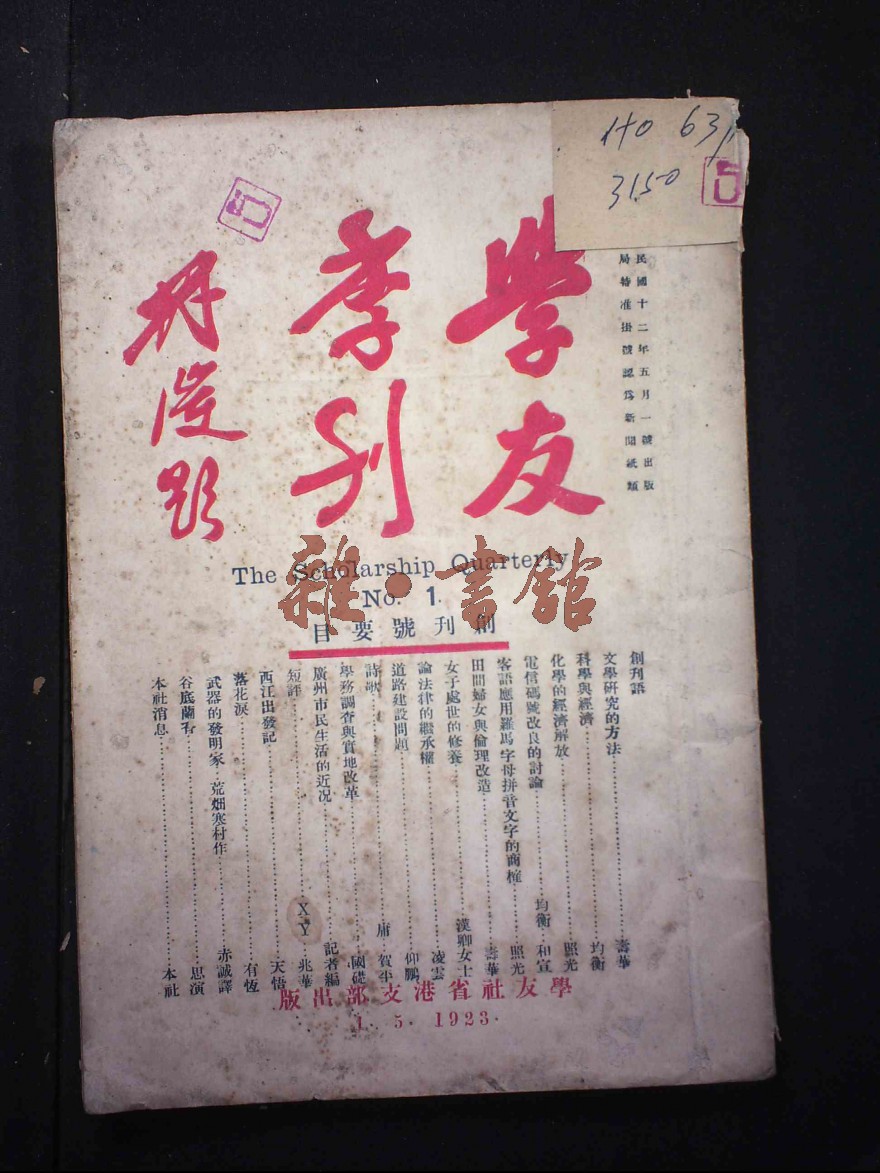 HO 63
3150
民國十二年五月一號出版
局特准掛號認爲新聞紙類
學友
季刊
題
The Scholarship Quarterly
No. 1.
雜·書館
創刊號要目
創刊語
文學研究的方法 壽華
科學與經濟 均衡
化學的經濟解放 照光
電信碼號改良的討論 均衡 和宣
客語應用羅馬字母拼音文字的商榷 照光
田間婦女與倫理改造 壽華
女子處世的修養 漢卿女士
論法律的繼承權 凌雲
道路建設問題 仰鵬
詩歌 庸 賀聖
學務調查與實地改革 國礎
廣州市民生活的近况 記者編
短評 XY 兆華
西江出發記 天悟
落花淚 有恆
武器的發明家 荒畑寒村作 赤誠譯
谷底蘭香 思演
本社消息 本社
學友社省港支部出版
1. 5. 1923.